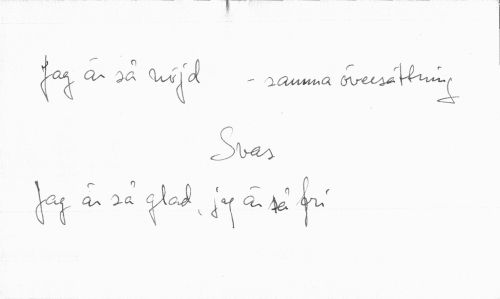 Jag är så nöjd - samma översättning
Svas
Jag är så glad, jag är så fri